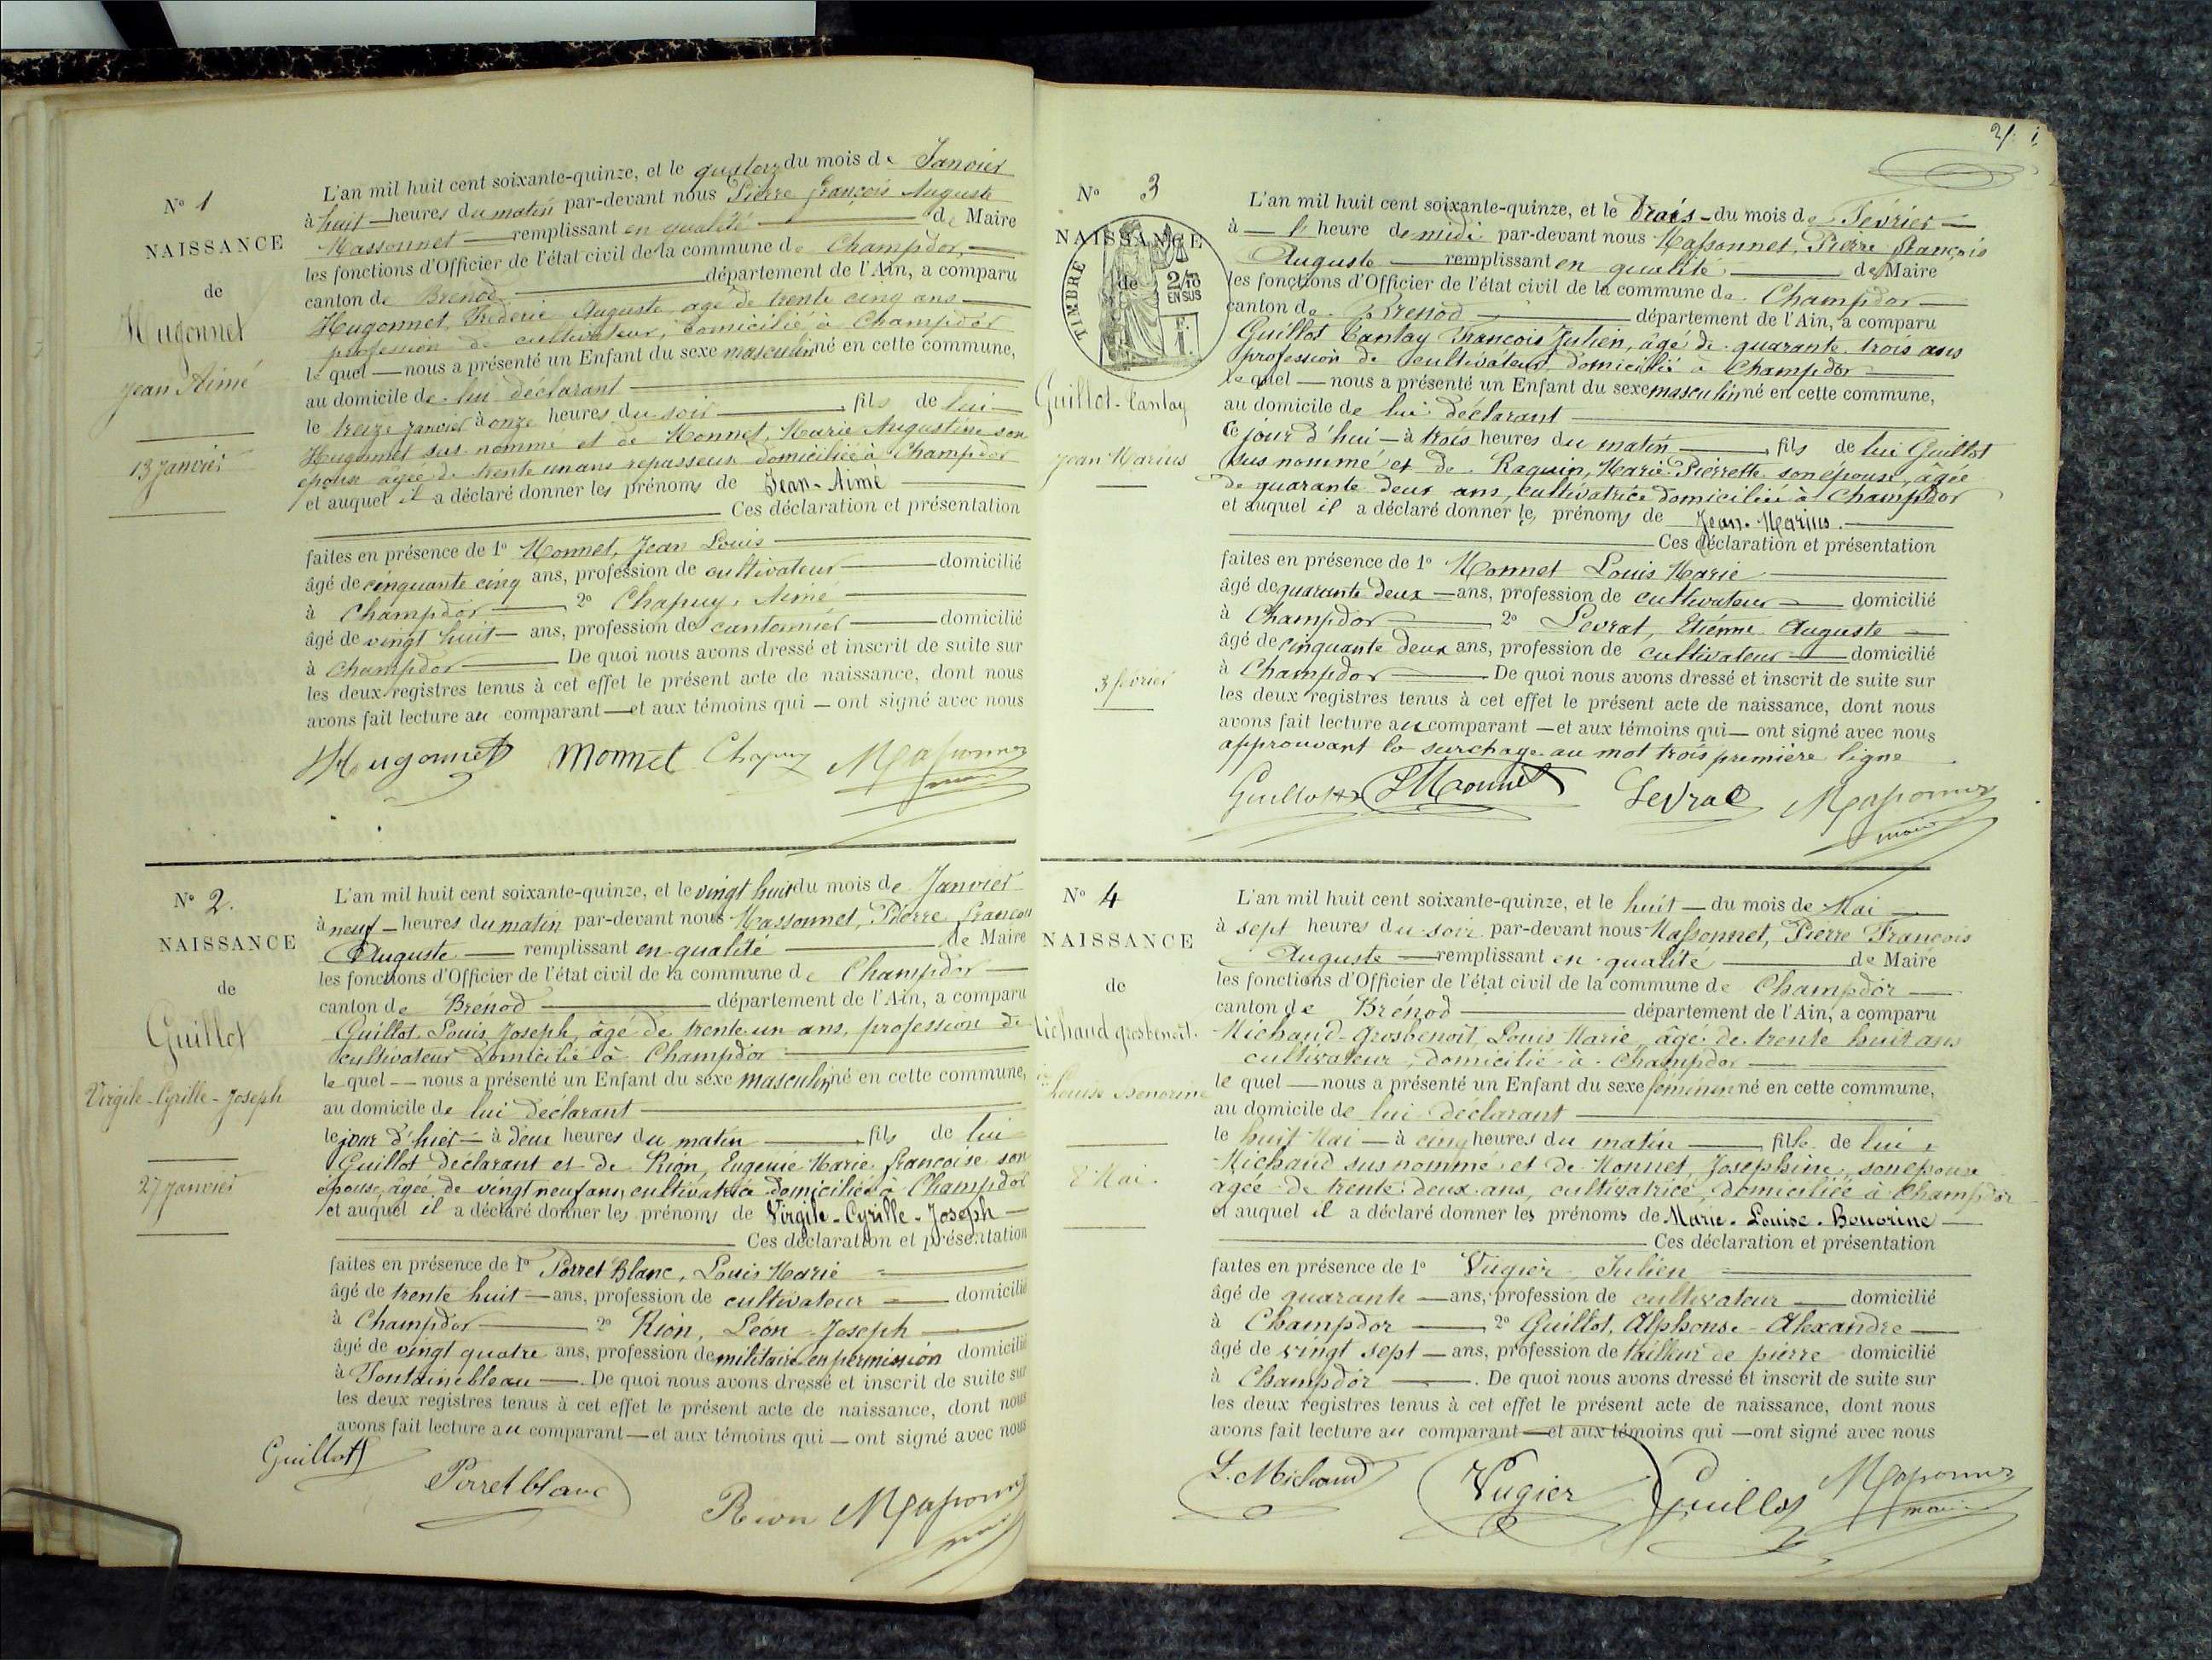 N° 1
NAISSANCE
de
Hugonnet
Jean Aimé
13 Janvier
L'an mil huit cent soixante-quinze, et le quatorze du mois de Janvier
à huit heures du matin par-devant nous Pierre françois Auguste
Massonnet remplissant en qualité de Maire
les fonctions d'Officier de l'état civil de la commune de Champdor,
canton de Brenod département de l'Ain, a comparu
Hugonnet, Frédéric Auguste agé de trente cinq ans
profession de cultivateur, domicilié à Champdor
le quel nous a présenté un Enfant du sexe masculin né en cette commune,
au domicile de lui déclarant
le treize janvier à onze heures du soir , fils de lui
Hugonnet sus nommé et de Monnet, Marie Augustine son
épouse âgée de trente un ans repasseuse domiciliée à Champdor
et auquel il a déclaré donner les prénoms de Jean-Aimé
Ces déclaration et présentation
faites en présence de 1° Monnet, Jean Louis
âgé de cinquante cinq ans, profession de cultivateur domicilié
à Champdor 2° Chapuy, Aimé
âgé de vingt huit ans, profession de cantonnier domicilié
à Champdor De quoi nous avons dressé et inscrit de suite sur
les deux registres tenus à cet effet le présent acte de naissance, dont nous
avons fait lecture au comparant et aux témoins qui ont signé avec nous
Hugonnet Monnet Chapuy Massonnet
maire
N° 2.
NAISSANCE
de
Guillot
Virgile-Cyrille-Joseph
27 Janvier
L'an mil huit cent soixante-quinze, et le vingt huit du mois de Janvier
à neuf heures du matin par-devant nous Massonnet, Pierre françois
Auguste remplissant en qualité de Maire
les fonctions d'Officier de l'état civil de la commune de Champdor
canton de Brénod département de l'Ain, a comparu
Guillot, Louis Joseph, âgé de trente un ans, profession de
cultivateur domicilié à Champdor
le quel nous a présenté un Enfant du sexe masculin né en cette commune,
au domicile de lui déclarant
le jour d'hier à deux heures du matin , fils de lui
Guillot déclarant et de Rion, Eugénie Marie françoise son
épouse, âgée de vingt neuf ans, cultivatrice domiciliée à Champdor
et auquel il a déclaré donner les prénoms de Virgile-Cyrille-Joseph
Ces déclaration et présentation
faites en présence de 1° Porret Blanc, Louis Marie
âgé de trente huit ans, profession de cultivateur domicilié
à Champdor 2° Rion, Léon Joseph
âgé de vingt quatre ans, profession de militaire en permission domicilié
à Fontainebleau . De quoi nous avons dressé et inscrit de suite sur
les deux registres tenus à cet effet le présent acte de naissance, dont nous
avons fait lecture au comparant et aux témoins qui ont signé avec nous
Guillot
Porret blanc
Rion Massonnet
maire
N° 3
NAISSANCE
de
TIMBRE
2/10
EN SUS
Guillot-Cantay
Jean Marius
3 février
L'an mil huit cent soixante-quinze, et le trois du mois de Février
à l' heure de midi par-devant nous Massonnet, Pierre françois
Auguste remplissant en qualité de Maire
les fonctions d'Officier de l'état civil de la commune de Champdor
canton de Brenod département de l'Ain, a comparu
Guillot Cantay François Julien, âgé de quarante trois ans
profession de cultivateur, domicilié à Champdor
le quel nous a présenté un Enfant du sexe masculin né en cette commune,
au domicile de lui déclarant
ce jour d'hui à trois heures du matin , fils de lui Guillot
sus nommé et de Raquin, Marie Pierrette son épouse, âgée
de quarante deux ans, cultivatrice domiciliée à Champdor
et auquel il a déclaré donner les prénoms de Jean-Marius.
Ces déclaration et présentation
faites en présence de 1° Monnet Louis Marie
âgé de quarante deux ans, profession de cultivateur domicilié
à Champdor 2° Levrat, Etienne Auguste
âgé de cinquante deux ans, profession de cultivateur domicilié
à Champdor De quoi nous avons dressé et inscrit de suite sur
les deux registres tenus à cet effet le présent acte de naissance, dont nous
avons fait lecture au comparant et aux témoins qui ont signé avec nous
approuvant la surchage au mot trois première ligne
Guillot LMonnet Levrat Massonnet
maire
N° 4
NAISSANCE
de
Michaud grosbenoit.
Louise Honorine
8 Mai.
L'an mil huit cent soixante-quinze, et le huit du mois de Mai
à sept heures du soir par-devant nous Massonnet, Pierre François
Auguste remplissant en qualité de Maire
les fonctions d'Officier de l'état civil de la commune de Champdor
canton de Brénod département de l'Ain, a comparu
Michaud-grosbenoit, Louis Marie, âgé de trente huit ans
cultivateur, domicilié à Champdor
le quel nous a présenté un Enfant du sexe féminin né en cette commune,
au domicile de lui déclarant
le huit Mai à cinq heures du matin , fille de lui
Michaud sus nommé et de Monnet, Josephine, son épouse
agée de trente deux ans, cultivatrice, domiciliée à Champdor
et auquel il a déclaré donner les prénoms de Marie-Louise-Honorine
Ces déclaration et présentation
faites en présence de 1° Vugier, Julien
âgé de quarante ans, profession de cultivateur domicilié
à Champdor 2° Guillot, Alphonse-Alexandre
âgé de vingt sept ans, profession de tailleur de pierre domicilié
à Champdor . De quoi nous avons dressé et inscrit de suite sur
les deux registres tenus à cet effet le présent acte de naissance, dont nous
avons fait lecture au comparant et aux témoins qui ont signé avec nous
L. Michaud Vugier Guillot Massonnet
maire